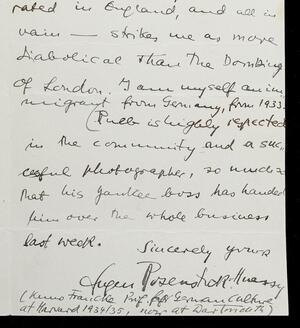 rated in England, and all in
vain — strikes me as more
diabolical than the bombing
of London. I am myself an im-
migrant from Germany, from 1933.
(Puelb is highly respected
in the community and a suc-
cessful photographer, so much so
that his yankee boss has handed
him over the whole business
last week.
Sincerely yours
Eugen Rosenstock-Huessy
(Kuno Francke Prof. for German Culture
at Harvard 1934/35, now at Dartmouth)